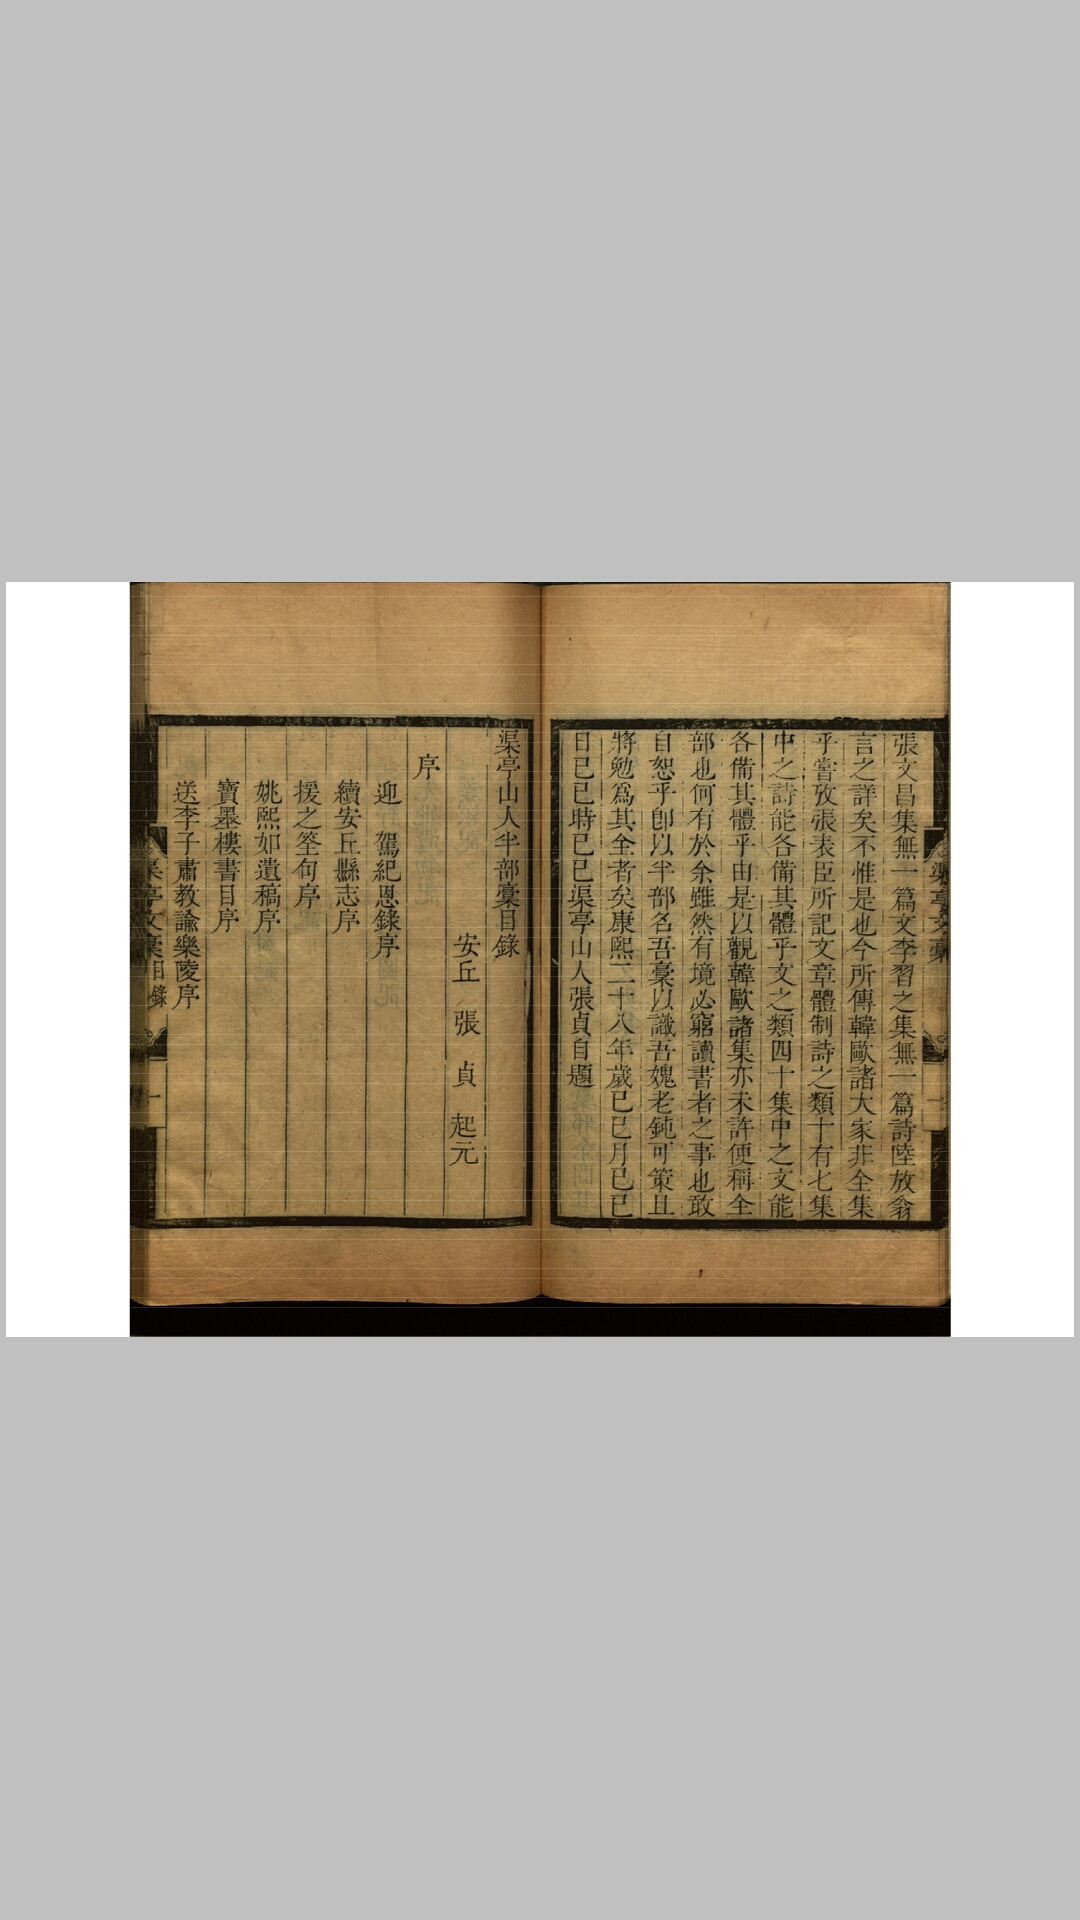 張文昌集無一篇文李習之集無一篇詩陸放翁
言之詳矣不惟是也今所傳韓歐諸大家非全集
乎嘗攷張表臣所記文章體制詩之類十有七集
中之詩能各備其體乎文之類四十集中之文能
各備其體乎由是以觀韓歐諸集亦未許便稱全
部也何有於余雖然有境必窮讀書者之事也敢
自恕乎卽以半部名吾稾以識吾媿老鈍可策且
將勉爲其全者矣康熙二十八年歲己巳月己巳
日己巳時己巳渠亭山人張貞自題
渠亭文稾
一
渠亭山人半部稾目錄
安丘張貞起元
序
迎 駕紀恩錄序
續安丘縣志序
援之筌句序
姚熙如遺稿序
寶墨樓書目序
送李子肅教諭樂陵序
渠亭文稾目錄
一